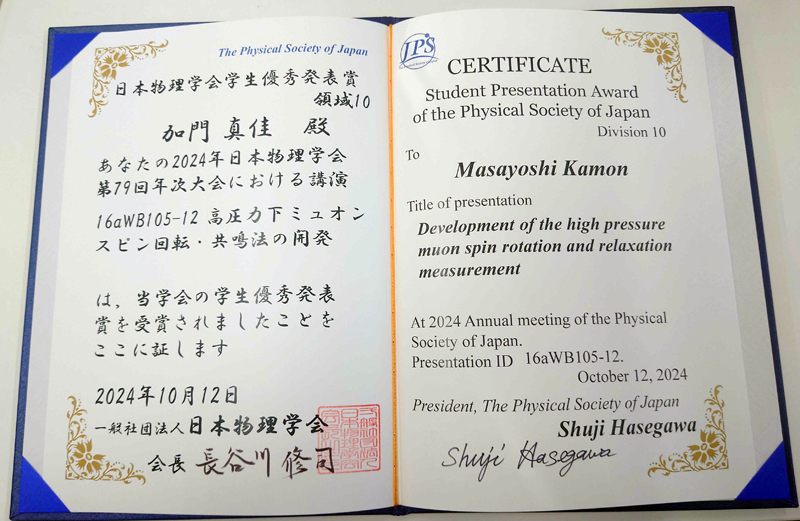 The Physical Society of Japan
日本物理学会学生優秀発表賞
領域10
加門 真佳 殿
あなたの2024年日本物理学会
第79回年次大会における講演
16aWB105-12 高圧力下ミュオン
スピン回転・共鳴法の開発
は，当学会の学生優秀発表
賞を受賞されましたことを
ここに証します
2024年10月12日
一般社団法人日本物理学会
会長 長谷川 修司
JPS
CERTIFICATE
Student Presentation Award
of the Physical Society of Japan
Division 10
To
Masayoshi Kamon
Title of presentation
Development of the high pressure
muon spin rotation and relaxation
measurement
At 2024 Annual meeting of the Physical
Society of Japan.
Presentation ID 16aWB105-12.
October 12, 2024
President, The Physical Society of Japan
Shuji Hasegawa
Shuji Hasegawa